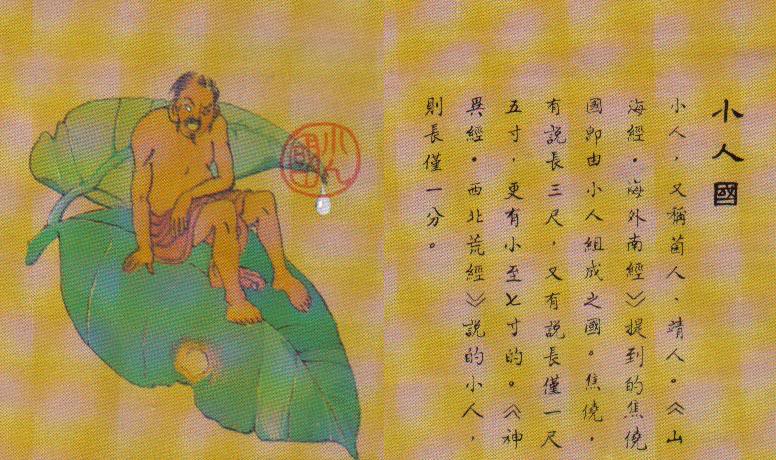 小人國
小人，又稱菌人、靖人。《山
海經．海外南經》提到的焦僥
國即由小人組成之國。焦僥，
有説長三尺，又有説長僅一尺
五寸，更有小至七寸的。《神
異經．西北荒經》説的小人，
則長僅一分。
小人國